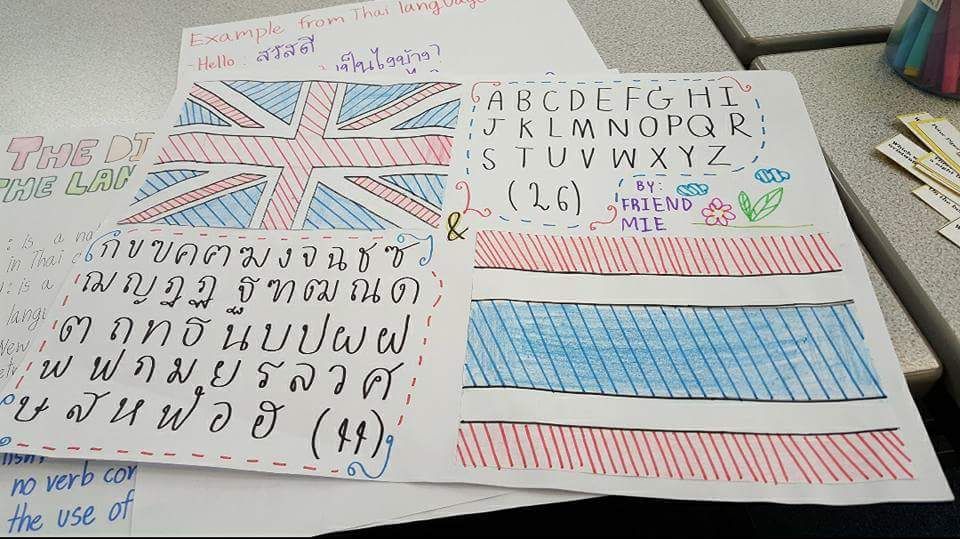 Example from Thai language
- Hello : สวัสดี
เป็นไงบ้าง?
THE DI
THE LAN
: is a na
in Thai
: is a
langu
New
A B C D E F G H I
J K L M N O P Q R
S T U V W X Y Z
(26)
BY:
FRIEND
MIE
&
ก ข ฃ ค ฅ ฆ ง จ ฉ ช ซ
ฌ ญ ฎ ฏ ฐ ฑ ฒ ณ ด
ต ถ ท ธ น บ ป ผ ฝ
พ ฟ ภ ม ย ร ล ว ศ
ษ ส ห ฬ อ ฮ (44)
no verb con
the use of